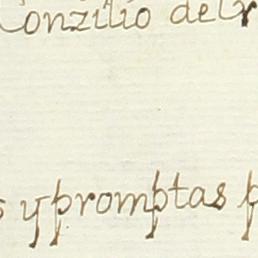 Conzilio del
s y promptas p